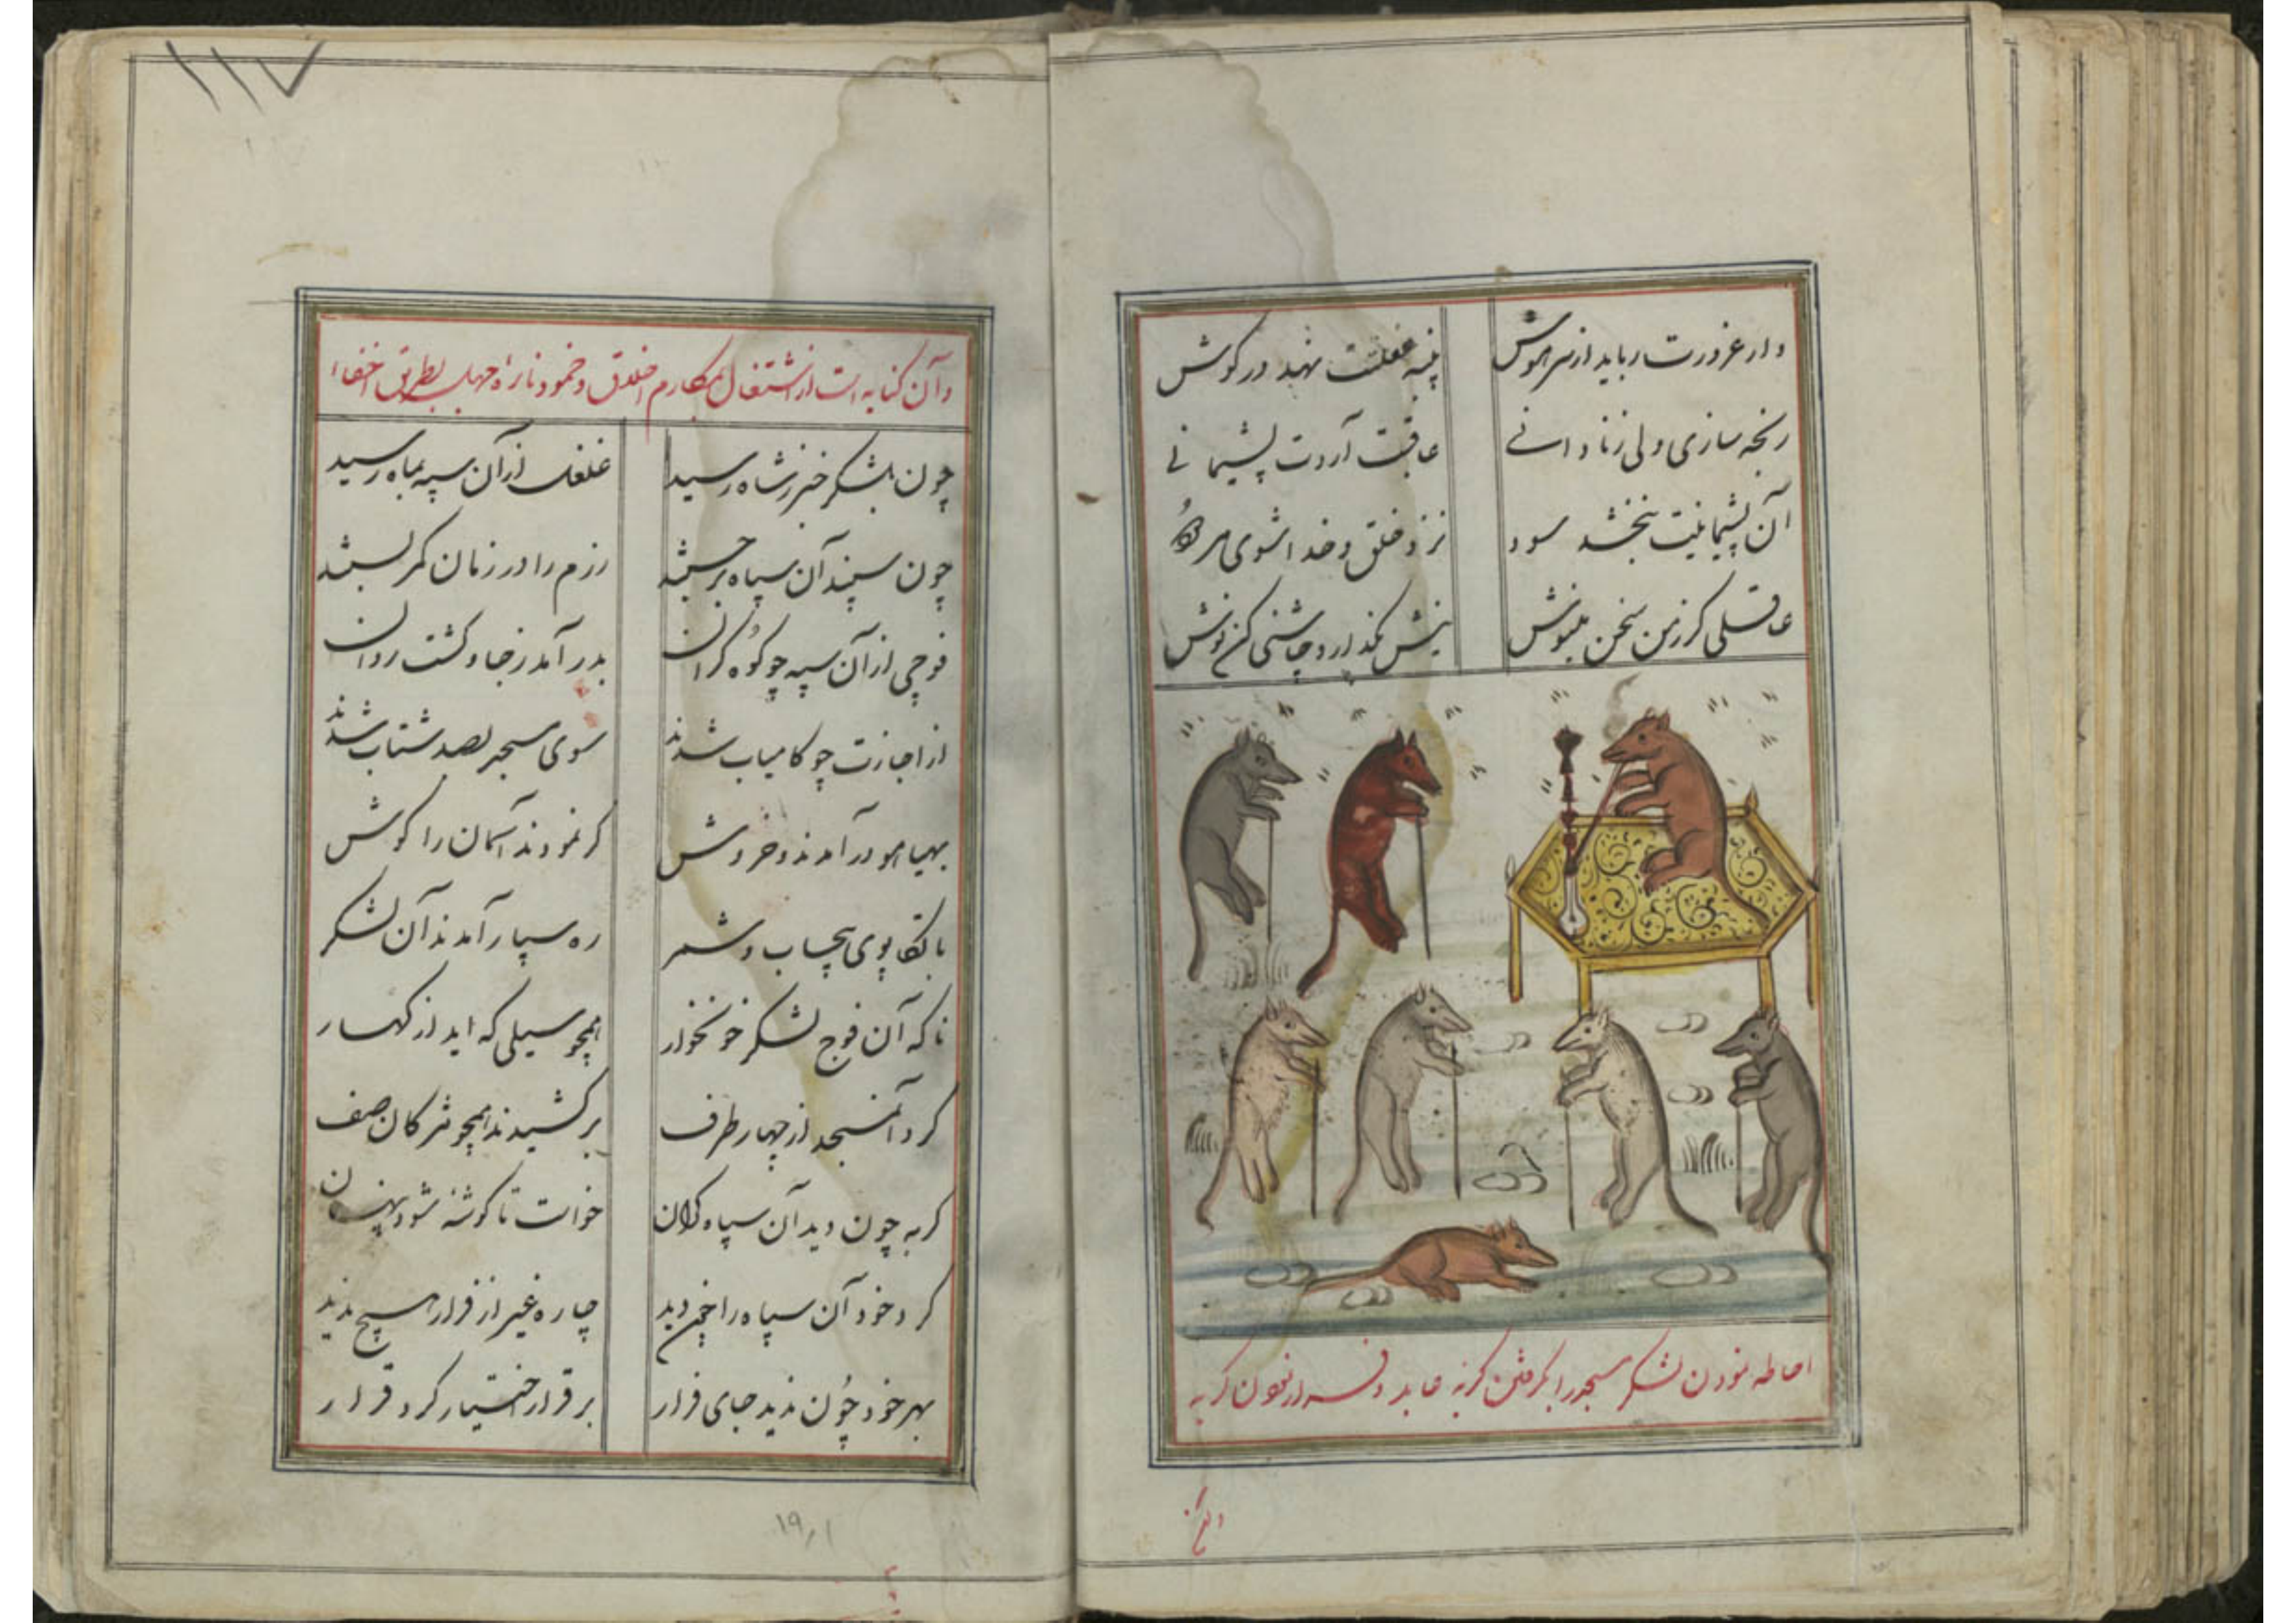 دارد غرورت رباید از سر هوش پنبه غفلتت نهد در گوش
رنجه سازی ولی ز نادانی عاقبت آردت پشیمانی
آن پشیمانیت نبخشد سود نزد خلق و خدا شوی مردود
عاقلی کر زمن سخن بنیوش نیش بگذار و چاشنی کن نوش
احاطه نمودن لشکر مسجد را بگرفتن کربه عابد و فرار نمودن کربه
وآن
۱۱۷
وآن کنایه است از اشتغال بمکارم اخلاق و خمود نایره جهل بطریق اخفا
چون بلشکر خبر ز شاه رسید غلغل از آن سپه بماه رسید
چون سپند آن سپاه برجستند رزم را در زمان کمر بستند
فوجی از آن سپه چو کوه کران بدر آمد ز جا و کشت روان
از اجازت چو کامیاب شدند سوی مسجد بصد شتاب شدند
بهیاهو در آمدند و خروش کر نمودند آسمان را کوش
با تکاپوی بیحساب و شمر ره سپار آمدند آن لشکر
ناکه آن فوج لشکر خونخوار همچو سیلی که اید از کهسار
کرد آن مسجد از چهار طرف برکشیدند همچو مژکان صف
کربه چون دید آن سپاه کران خواست تا کوشه شود پنهان
کرد خود آن سپاه را چون دید چاره غیر از فرار هیچ ندید
بهر خود چون ندید جای فرار برقرار اختیار کرد قرار
۱۹۱